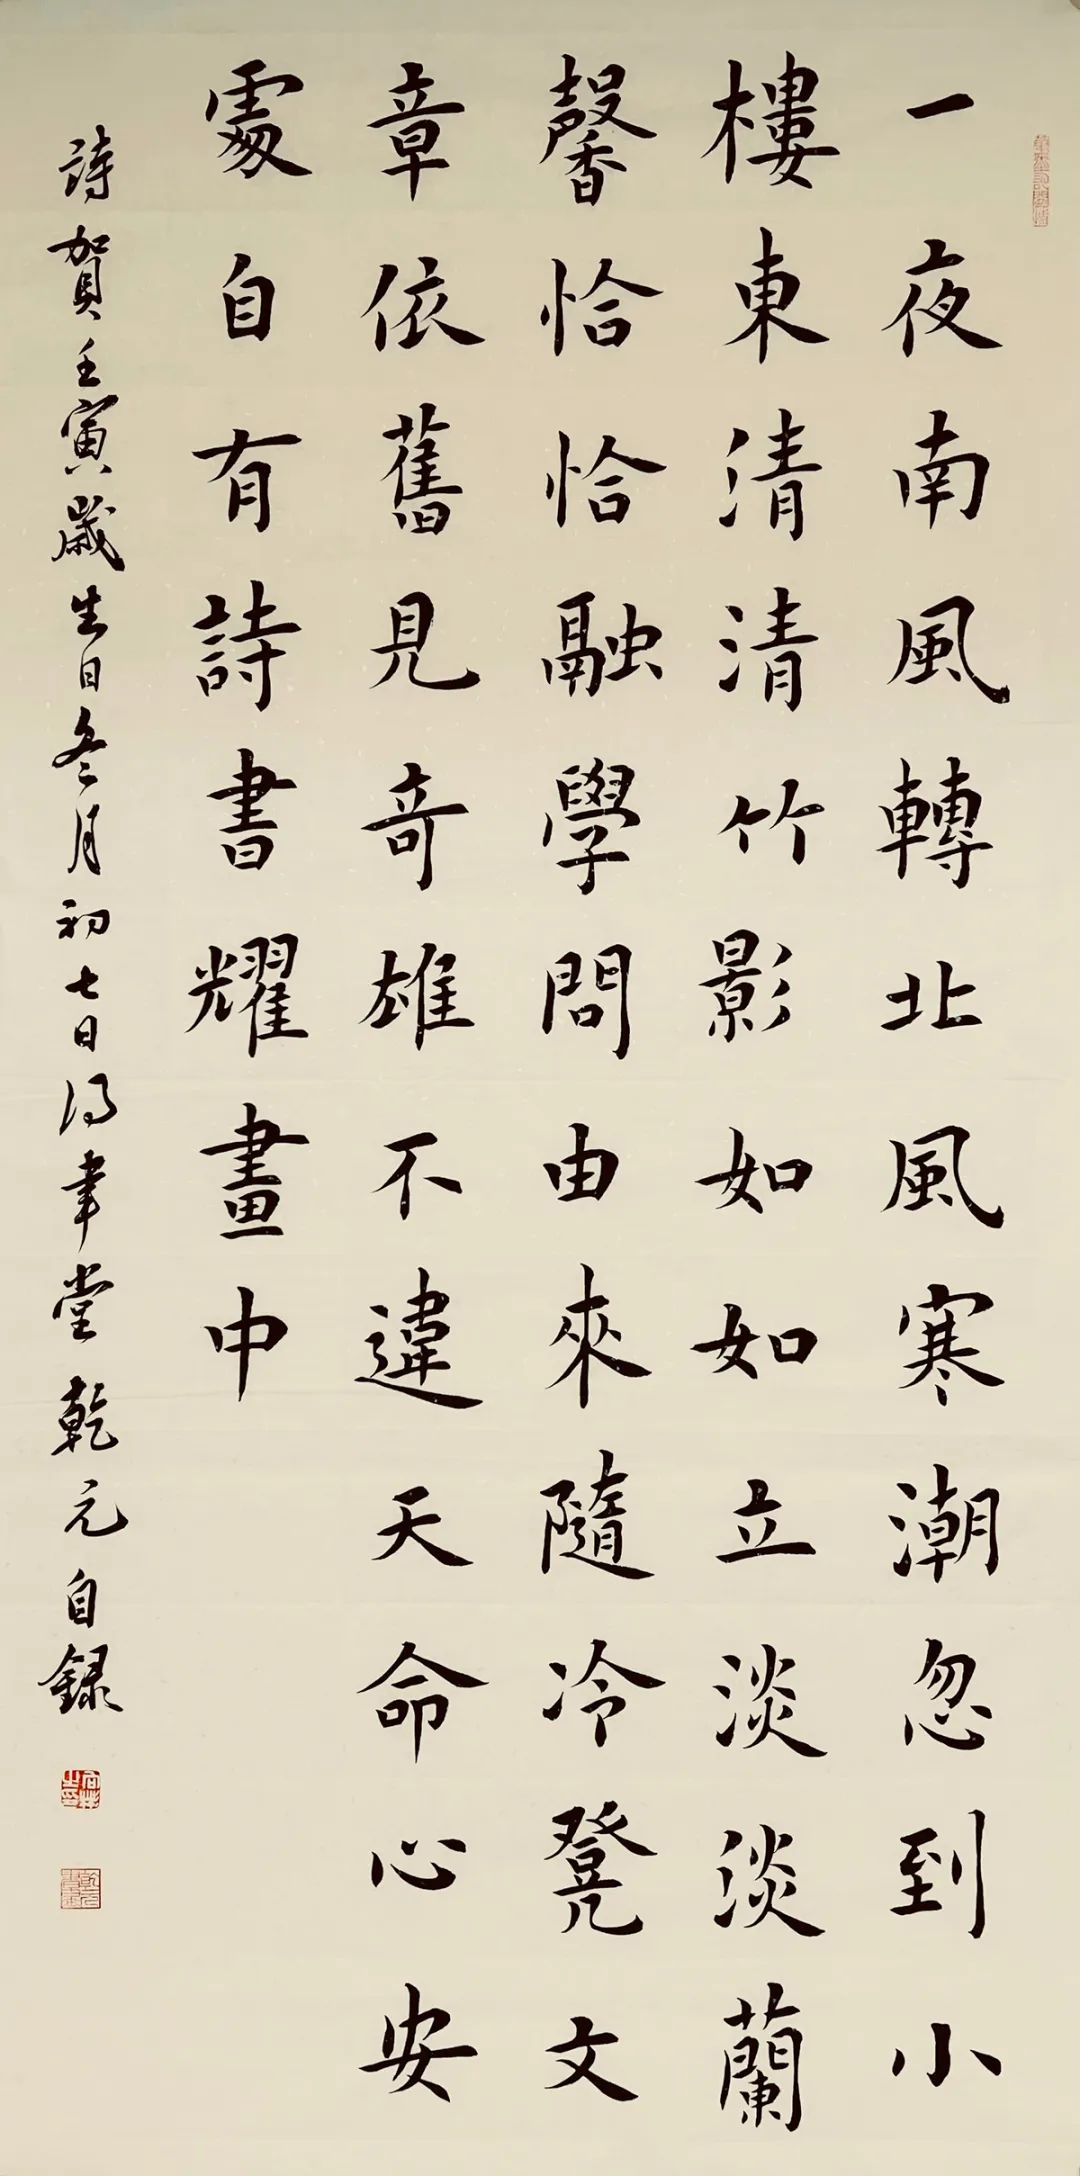 一夜南風轉北風寒潮忽到小
樓東清清竹影如如立淡淡蘭
馨恰恰融學問由來隨冷凳文
章依舊見奇雄不違天命心安
處自有詩書耀畫中
詩賀壬寅歲生日冬月初七日得聿堂乾元自録